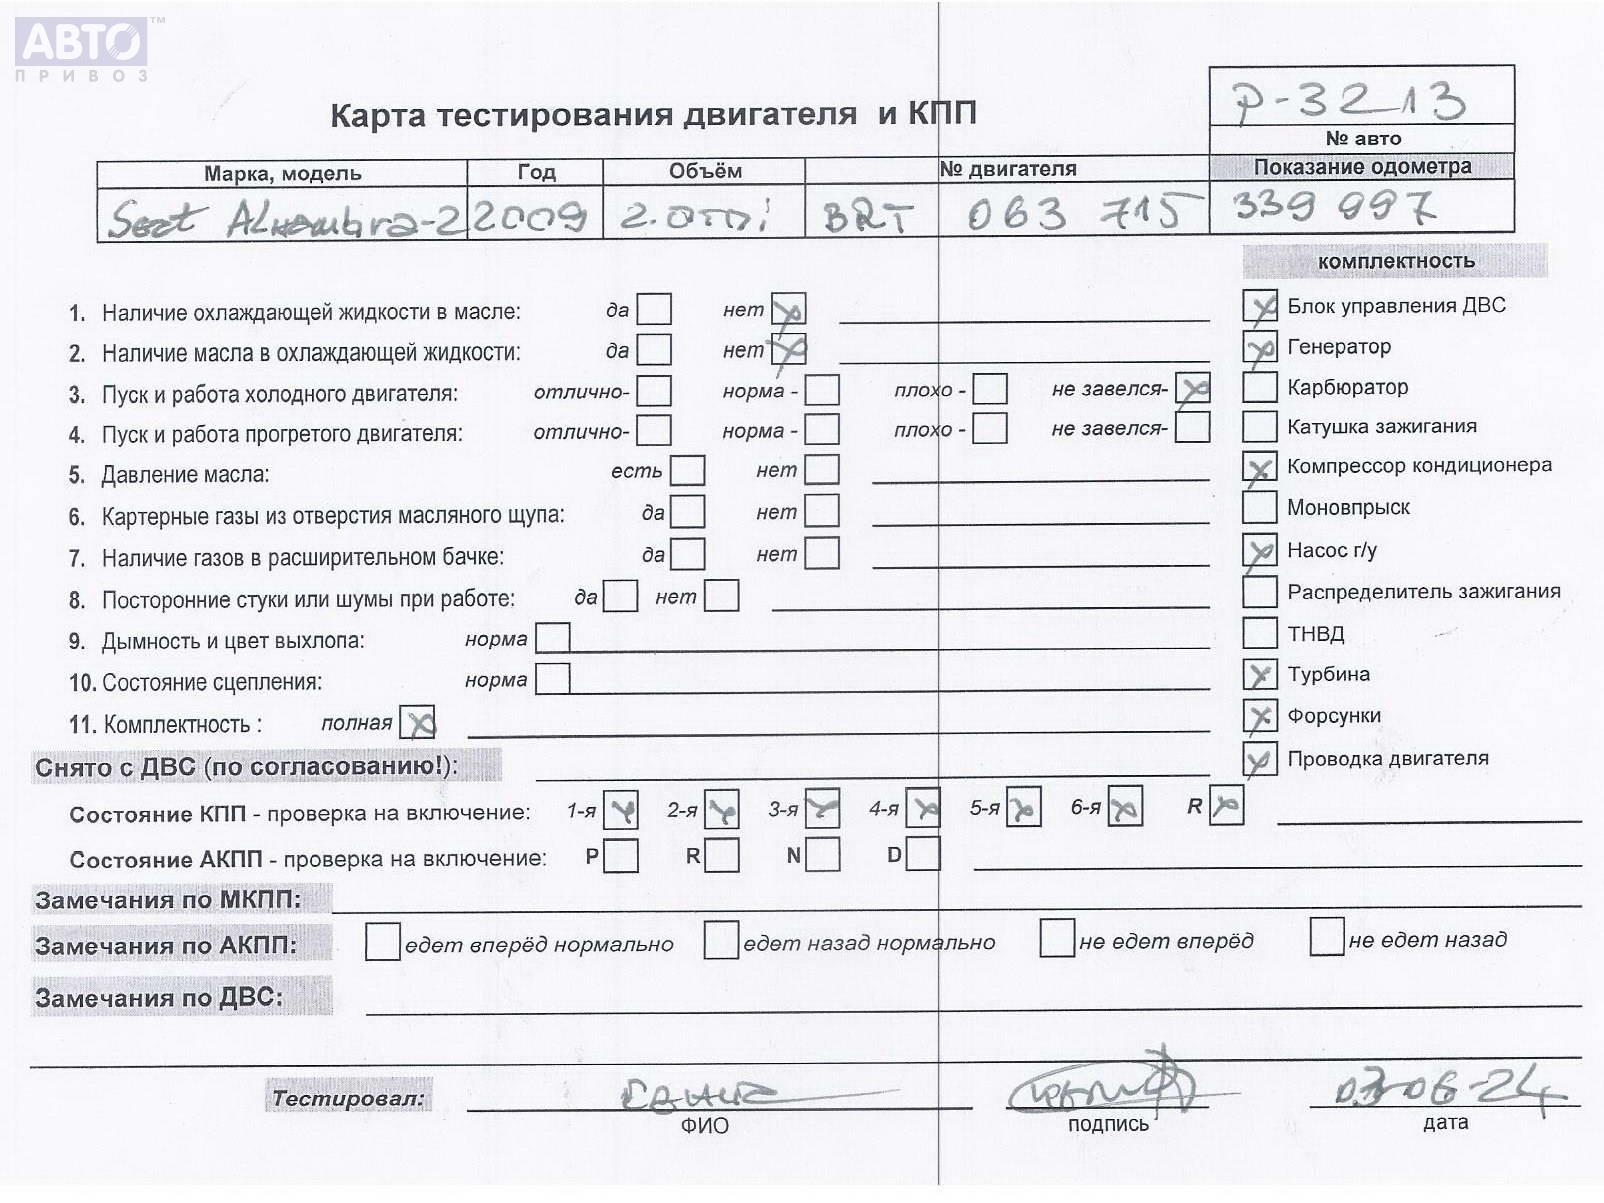 АВТО™
ПРИВОЗ
Карта тестирования двигателя и КПП
P-3213
№ авто
Марка, модель Год Объём № двигателя Показание одометра
Seat Alhambra-2 2009 2.0TDi BRT 063 715 339 997
комплектность
1. Наличие охлаждающей жидкости в масле: да нет Блок управления ДВС
2. Наличие масла в охлаждающей жидкости: да нет Генератор
3. Пуск и работа холодного двигателя: отлично- норма - плохо - не завелся- Карбюратор
4. Пуск и работа прогретого двигателя: отлично- норма - плохо - не завелся- Катушка зажигания
5. Давление масла: есть нет Компрессор кондиционера
6. Картерные газы из отверстия масляного щупа: да нет Моновпрыск
7. Наличие газов в расширительном бачке: да нет Насос г/у
8. Посторонние стуки или шумы при работе: да нет Распределитель зажигания
9. Дымность и цвет выхлопа: норма ТНВД
10. Состояние сцепления: норма Турбина
11. Комплектность : полная Форсунки
Снято с ДВС (по согласованию!): Проводка двигателя
Состояние КПП - проверка на включение: 1-я 2-я 3-я 4-я 5-я 6-я R
Состояние АКПП - проверка на включение: P R N D
Замечания по МКПП:
Замечания по АКПП: едет вперёд нормально едет назад нормально не едет вперёд не едет назад
Замечания по ДВС:
Тестировал: 03-06-24
ФИО подпись дата